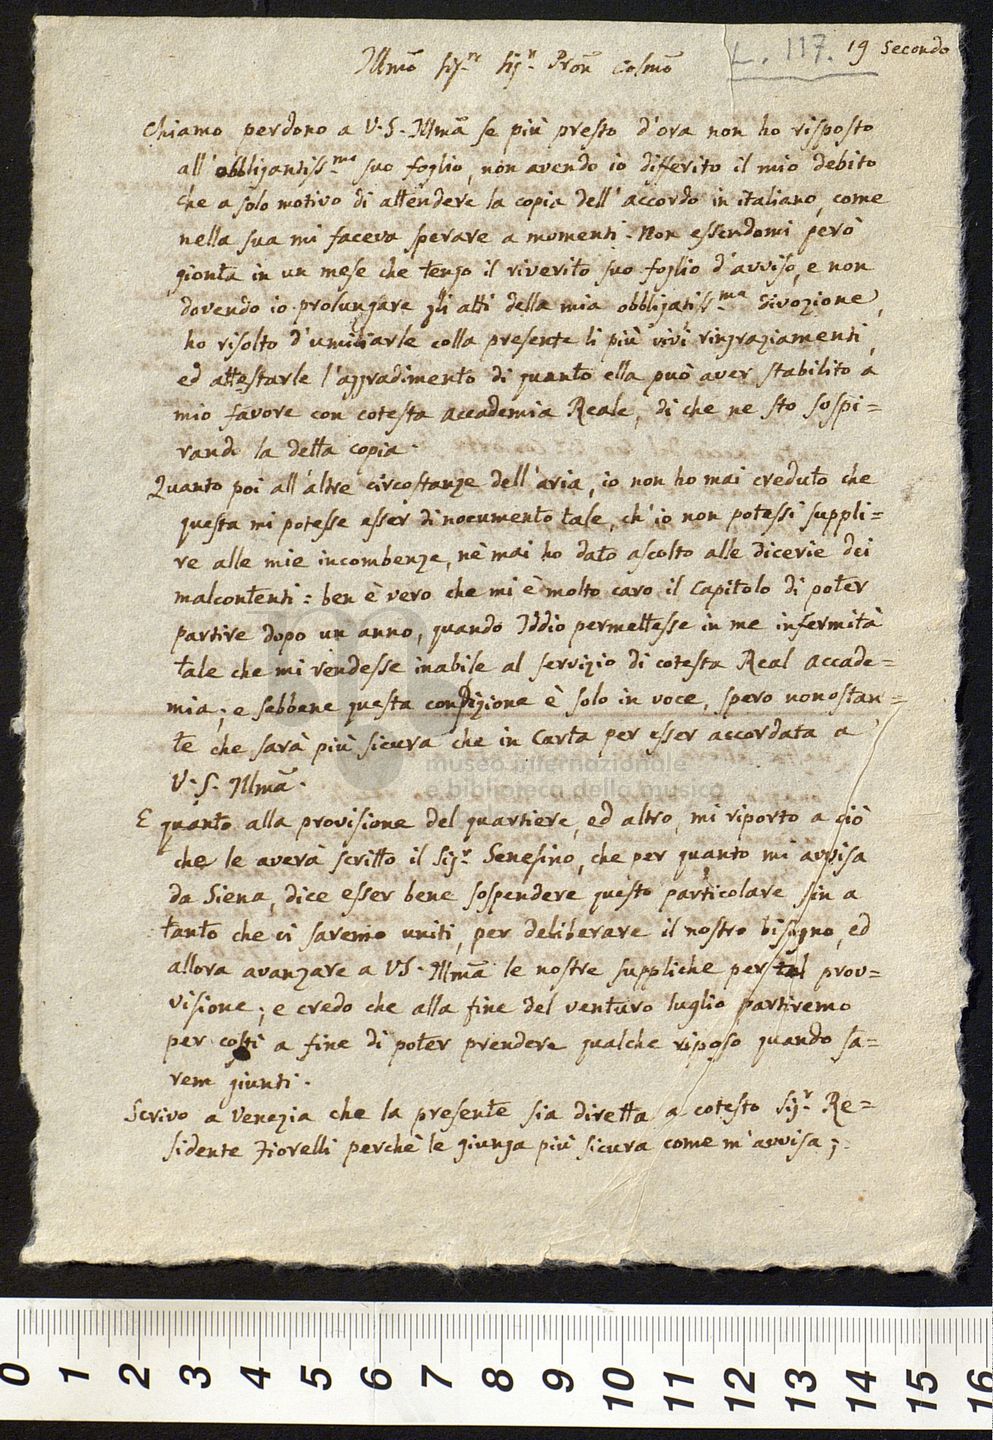 L. 117. 19 Secondo
Illmo Sig.r Sig.r Pron Colmo
Chiamo perdono a V.S. Illma se più presto d'ora non ho risposto
all'obbligantiss.mo suo foglio, non avendo io differito il mio debito
che a solo motivo di attendere la copia dell'accordo in italiano, come
nella sua mi faceva sperare a momenti. Non essendomi però
gionta in un mese che tengo il riverito suo foglio d'avviso, e non
dovendo io prolungare gli atti della mia obbligatiss.ma divozione,
ho risolto d'umiliarle colla presente li più vivi ringraziamenti,
ed attestarle l'aggradimento di quanto ella può aver stabilito a
mio favore con cotesta accademia Reale, di che ne sto sospi=
rando la detta copia.
Quanto poi all'altre circostanze dell'aria, io non ho mai creduto che
questa mi potesse esser di nocumento tale, ch'io non potessi suppli=
re alle mie incombenze, nè mai ho dato ascolto alle dicerie dei
malcontenti: ben è vero che mi è molto caro il Capitolo di poter
partire dopo un anno, quando Iddio permettesse in me infermità
tale che mi rendesse inabile al servizio di cotesta Real accade=
mia; e sebbene questa condizione è solo in voce, spero nonostan=
te che sarà più sicura che in Carta per esser accordata a
V.S. Illma.
E quanto alla provisione del quartiere, ed altro, mi riporto a ciò
che le averà scritto il Sig.r Senesino, che per quanto mi avvisa
da Siena, dice esser bene sospendere questo particolare sin a
tanto che ci saremo uniti, per deliberare il nostro bisogno, ed
allora avanzare a VS. Illma le nostre suppliche per tal prov=
visione; e credo che alla fine del venturo luglio partiremo
per costì a fine di poter prendere qualche riposo quando sa=
rem giunti.
Scrivo a Venezia che la presente sia diretta a cotesto Sig.r Re=
sidente Fiorelli perchè le giunga più sicura come m'avvisa;
museo internazionale
e biblioteca della musica
0 1 2 3 4 5 6 7 8 9 10 11 12 13 14 15 16